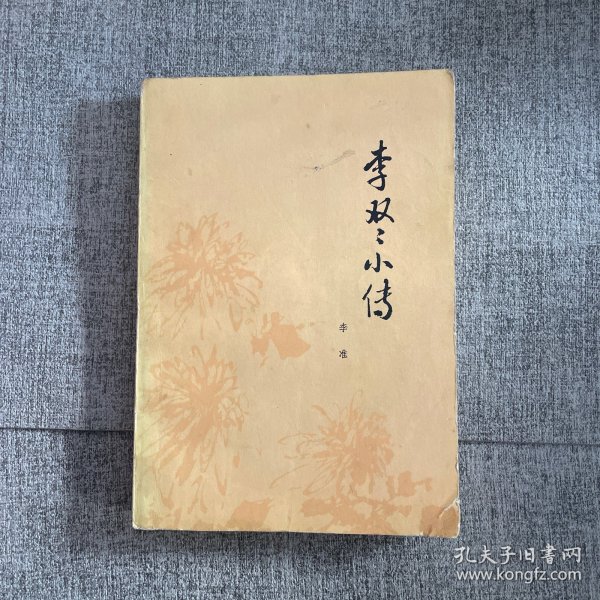 李双〻小传
李准
孔夫子旧书网
www.kongfz.com